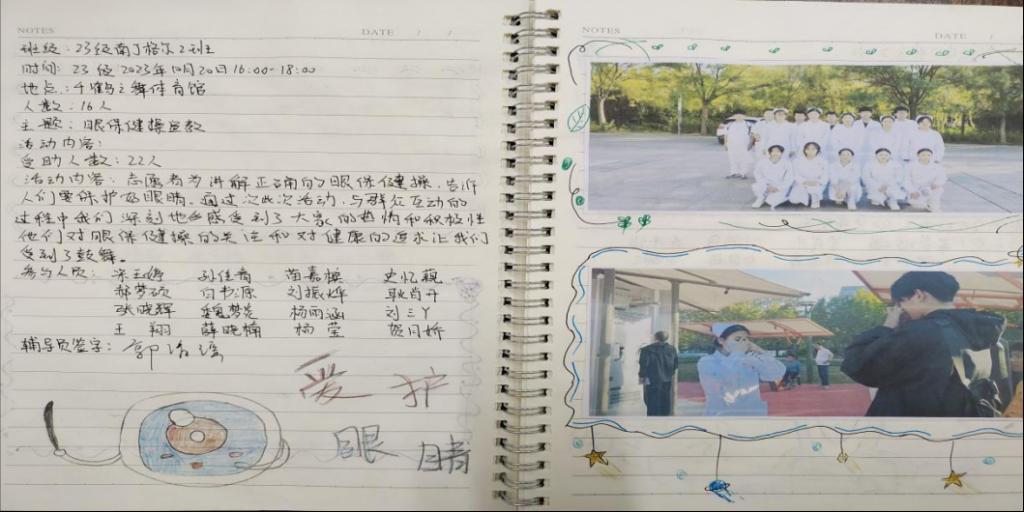 NOTES
DATE / /
班级：23级南丁格尔2班
时间：23级 2023年10月20日16:00-18:00
地点：千鹤之舞体育馆
人数：16人
主题：眼保健操宣教
活动内容：
受助人数：22人
活动内容：志愿者为讲解正确的眼保健操，告诉
人们要保护好眼睛。通过次此次活动，与群众互动的
过程中我们深刻地感受到了大家的热情和积极性
他们对眼保健操的关注和对健康的追求让我们
受到了鼓舞。
参与人员：
刘振烨
张晓辉 杨雨涵 刘三丫
王翔 薛晓楠 杨莹 贺月娇
辅导员签字：
爱护
眼睛
NOTES
DATE / /